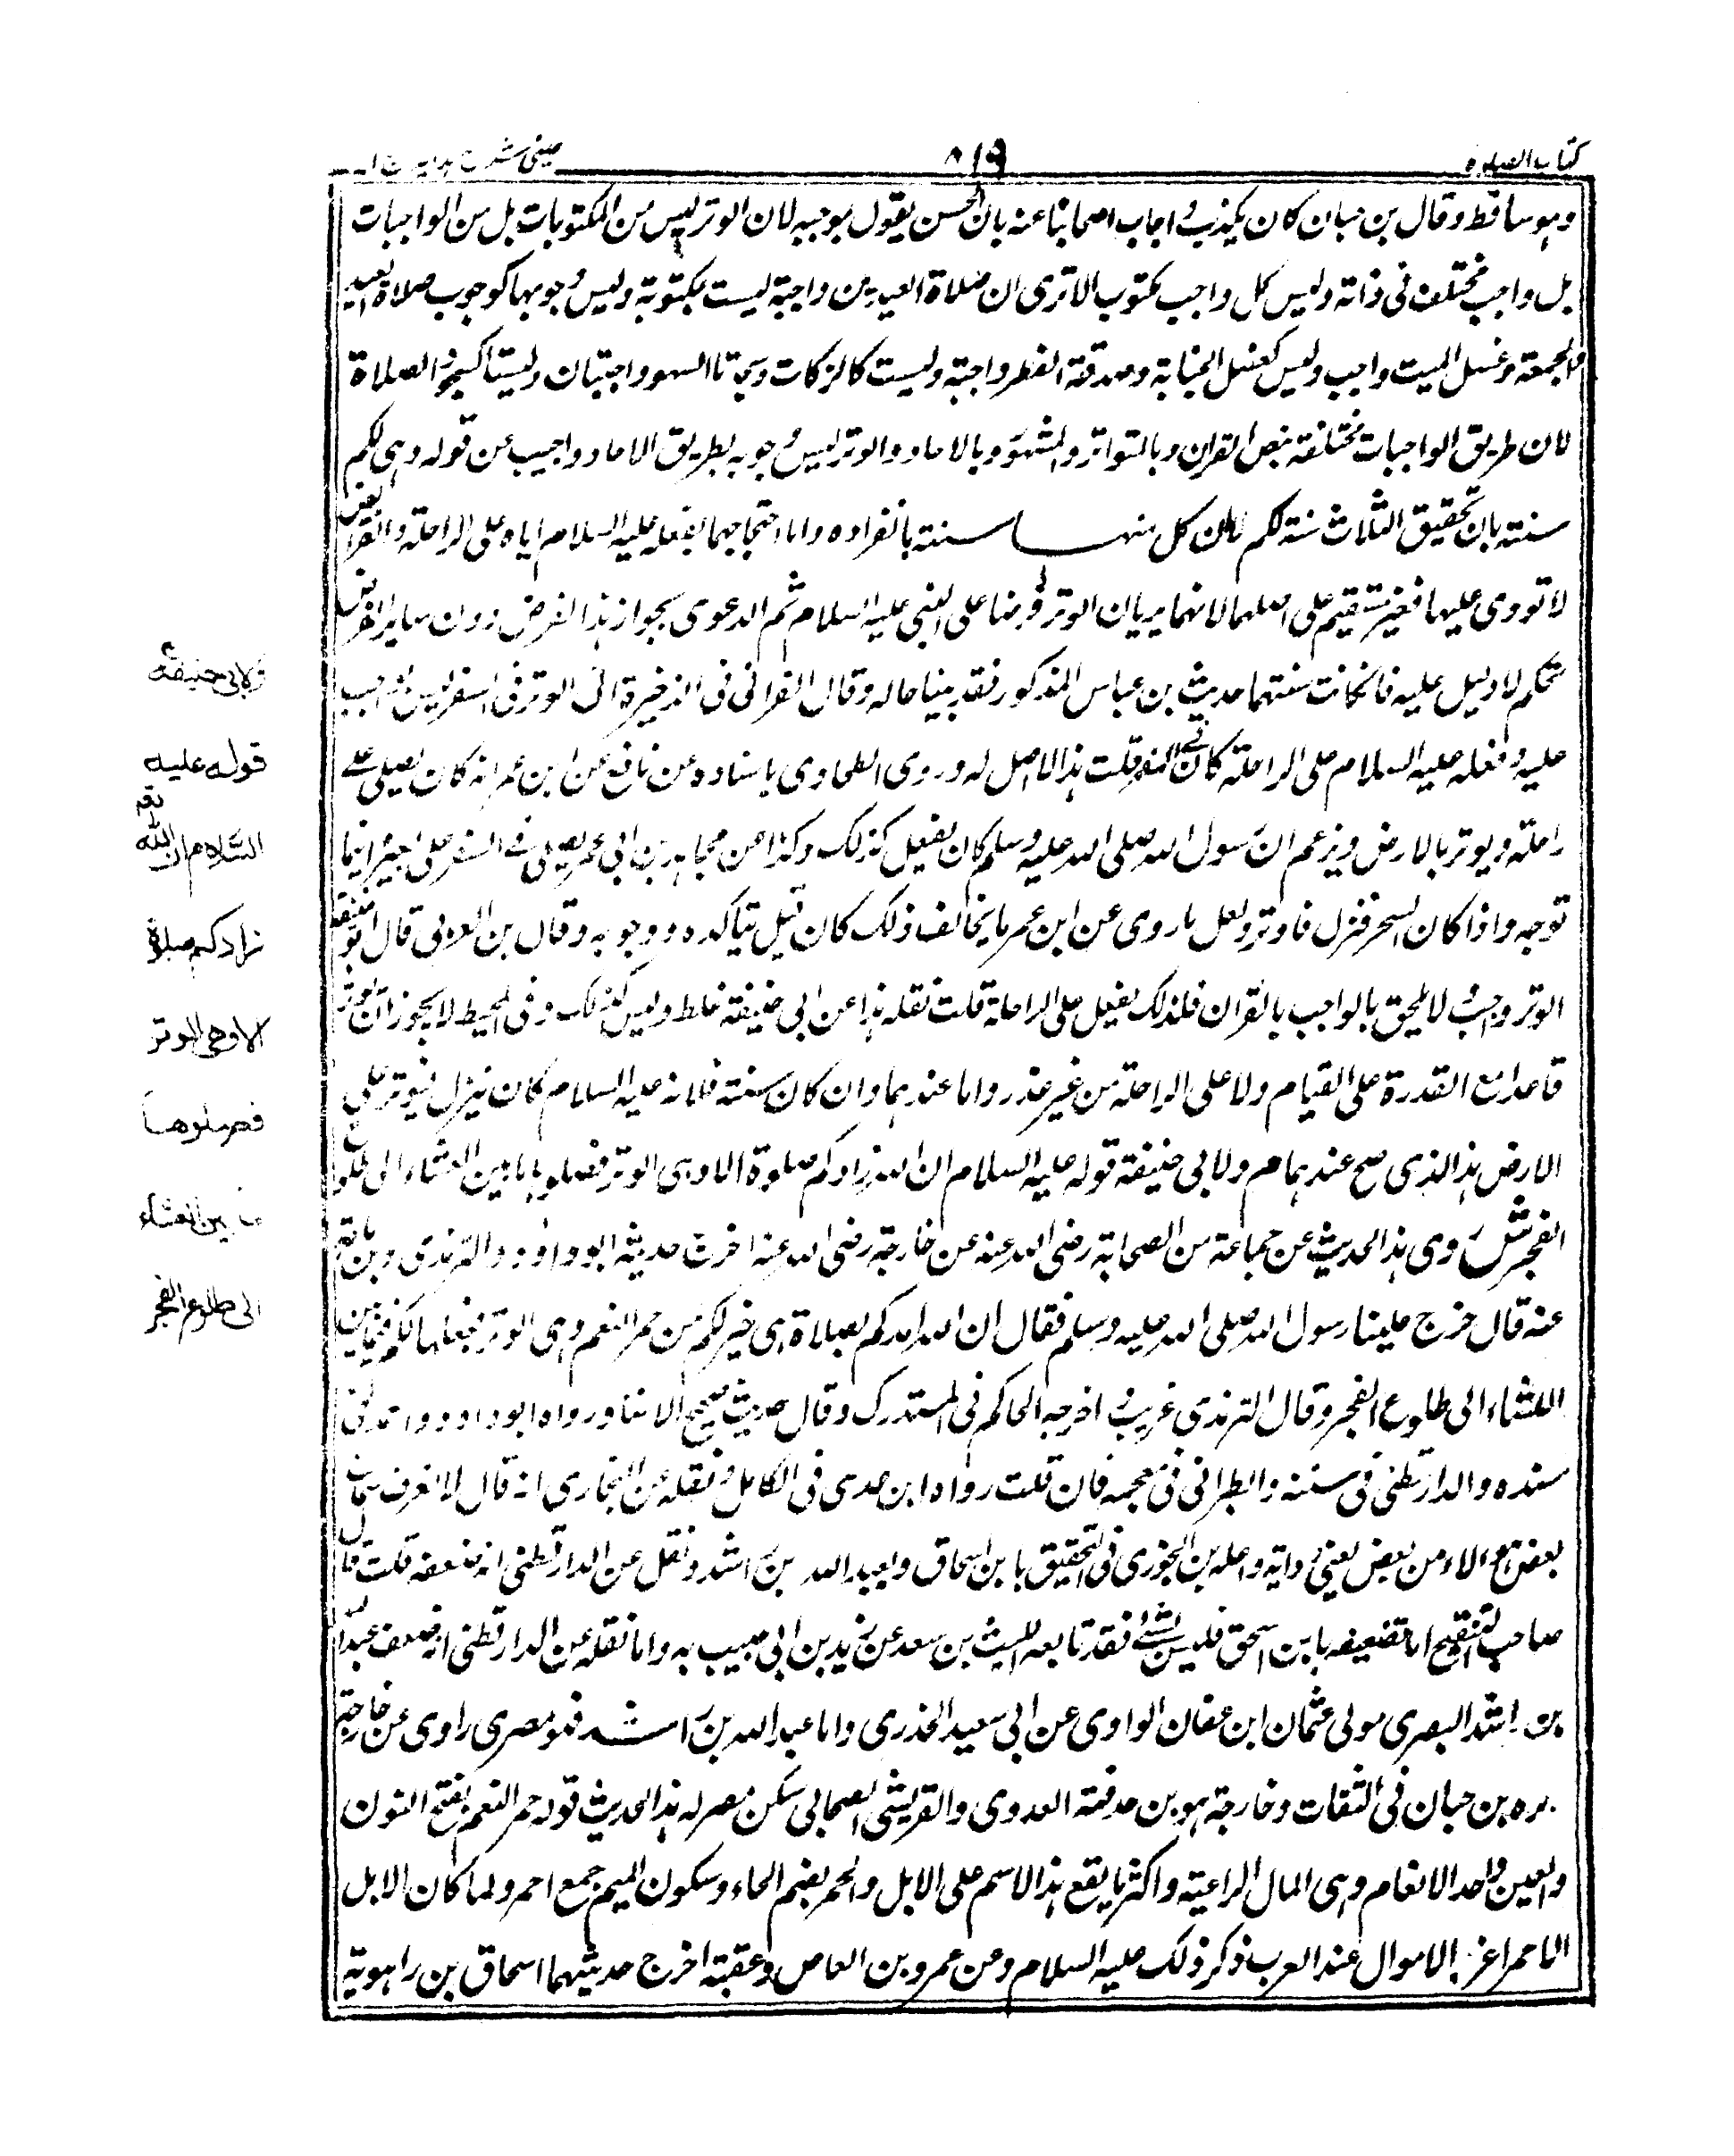 كتاب الصلوة
٨١٩
عينى شرح هدايه ج ا
وهو ساقط وقال بن حبان كان يكذب واجاب اصحابنا عنه بان الحسن يقول بوجبه لان الوتر ليس من المكتوبات بل من الواجبات
بل واجب مختلف فى ذاته وليس كل واجب بمكتوب الا ترى ان صلاة العيدين واجبة ليست بمكتوبة وليس وجوبها كوجوب صلاة العيد
والجمعة وغسل الميت واجب وليس كغسل الجنابة وصدقة الفطر واجبة وليست كالزكات وسجدتا السهو واجبتان وليستا كسجدة الصلاة
لان طريق الواجبات مختلفة بنص القران وبالتواتر والمشهور وبالاحاد والوتر ليس وجوبه بطريق الاحاد واجيب عن قوله وهى لكم
سنته بان تحقيق الثلاث سنة لكم لان كل منها سنته بانفراده واما احتجاجهما بفعله عليه السلام اياه على الراحلة والفرائض
لا تودى عليها فغير مستقيم على اصلهما لانهما يريان الوتر فرضا على النبى عليه السلام ثم الدعوى بجواز هذا الفرض دون ساير الفرائض
تحكم لا دليل عليه فان كانت سنتهما حديث بن عباس المذكور فقد بينا حاله وقال القرافى فى الذخيرة ان الوتر فى السفر ليس بواجب
عليه وفعله عليه السلام على الراحلة كان فى السفر قلت هذا لا اصل له وروى الطحاوى باسناده عن نافع عن ابن عمر انه كان يصلى على
راحلته ويوتر بالارض ويزعم ان رسول الله صلى الله عليه وسلم كان يفعل كذلك وكذا عن مجاهد بن ابى عمر يصلى فى السفر على بعيره اينما
توجه واذا كان السحر فنزل فاوتر ولعل ما روى عن ابن عمر ما يخالف ذلك كان قبل تاكده ووجوبه وقال بن العربى قال ابو حنيفة
الوتر واجب لا يلحق بالواجب بالقران فلذلك يفعل على الراحلة قلت نقله هذا عن ابى حنيفة غلط وليس كذلك وفى المحيط لا يجوز ان يوتر
قاعدا مع القدرة على القيام ولا على الراحلة من غير عذر واما عندهما وان كان سنته فلانه عليه السلام كان ينزل فيوتر على
الارض هذا الذى صح عندهما م ولابى حنيفة قوله عليه السلام ان الله زادكم صلوة الا وهى الوتر فصلوها ما بين العشاء الى طلوع
الفجر ش روى هذا الحديث عن جماعة من الصحابة رضى الله عنه عن خارجة رضى الله عنه اخرت حديثه ابو داؤد والترمذى وبن ماجة
عنه قال خرج علينا رسول الله صلى الله عليه وسلم فقال ان الله امدكم بصلاة هى خير لكم من حمر النعم وهى الوتر فجعلها لكم فيما بين
العشاء الى طلوع الفجر وقال الترمذى غريب واخرجه الحاكم فى المستدرك وقال حديث صحيح الاسناد ورواه ابو داود واحمد فى
سنده والدارقطنى فى سننه والطبرانى فى معجمه فان قلت رواه ابن عدى فى الكامل ونقله عن البخارى انه قال لا نعرف سماع
بعض هولاء من بعض يعنى رواية واعله بن الجوزى فى التحقيق بابن اسحاق وبعبد الله بن راشد ونقل عن الدارقطنى انه ضعفه قلت قال
صاحب التنقيح اما تضعيفه بابن اسحق فليس بشئ فقد تابعه الليث بن سعد عن يزيد بن ابى حبيب به واما نقله عن الدارقطنى انه ضعف عبد الله
بن راشد البصرى مولى عثمان ابن عفان الراوى عن ابى سعيد الخدرى واما عبد الله بن راشد فهو مصرى راوى عن خارجة
ذكره بن حبان فى الثقات وخارجة هو بن حذفة العدوى والقريشى الصحابى سكن مصر له هذا الحديث قوله حمر النعم بفتح النون
والعين واحد الانعام وهى المال الراعية واكثر ما يقع هذا الاسم على الابل والحمر بضم الحاء وسكون الميم جمع احمر ولما كان الابل
الاحمر اعز الاموال عند العرب ذكر ذلك عليه السلام وعن عمرو بن العاص وعقبة اخرج حديثهما اسحاق بن راهوية
ولابى حنيفة
قوله عليه
السلام ان الله تعم
زادكم صلاة
الا وهى الوتر
فصلوها
ما بين العشاء
الى طلوع الفجر